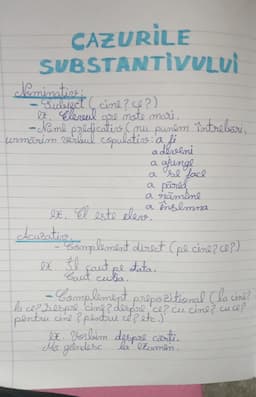 CAZURILE
SUBSTANTIVULUI
Nominativ:
- Subiect (cine? ce?)
ex. Elevul are note mari.
- Nume predicativ (nu punem întrebări,
urmărim verbul copulativ: a fi
a deveni
a ajunge
a se face
a părea
a rămâne
a însemna
ex. El este elev.
Acuzativ:
- Complement direct (pe cine? ce?)
ex. Îl caut pe tata.
Caut cutia.
- Complement prepozițional (la cine?
la ce? despre cine? despre ce? cu cine? cu ce?
pentru cine? pentru ce? etc.)
ex. Vorbim despre cărți.
Mă gândesc la examen.